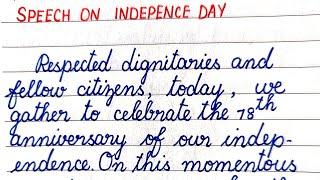 SPEECH ON INDEPENCE DAY
Respected dignitaries and
fellow citizens, today, we
gather to celebrate the 78th
anniversary of our indep-
endence. On this momentous